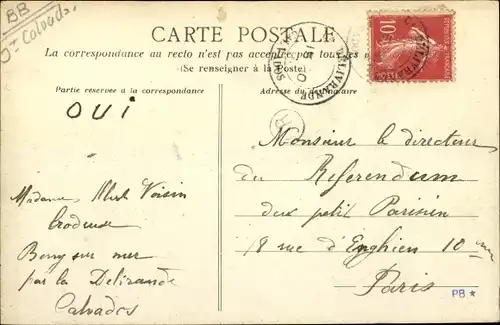 BB
Calvados
CARTE POSTALE
La correspondance au recto n'est pas acceptée par tous les
(Se renseigner à la Poste)
Partie réservée à la correspondance
Adresse du destinataire
OUI
DÉLIVRANDE
10
Monsieur le directeur
du Referendum
du petit Parisien
18 rue d'Enghien 10 me
Paris
Madame Voisin
Brodeuse
Beny sur mer
par la Delivrande
Calvados
PB *